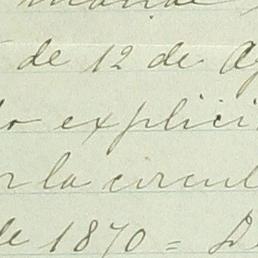 de 12 de Ag
explici
la circul
de 1870 = D